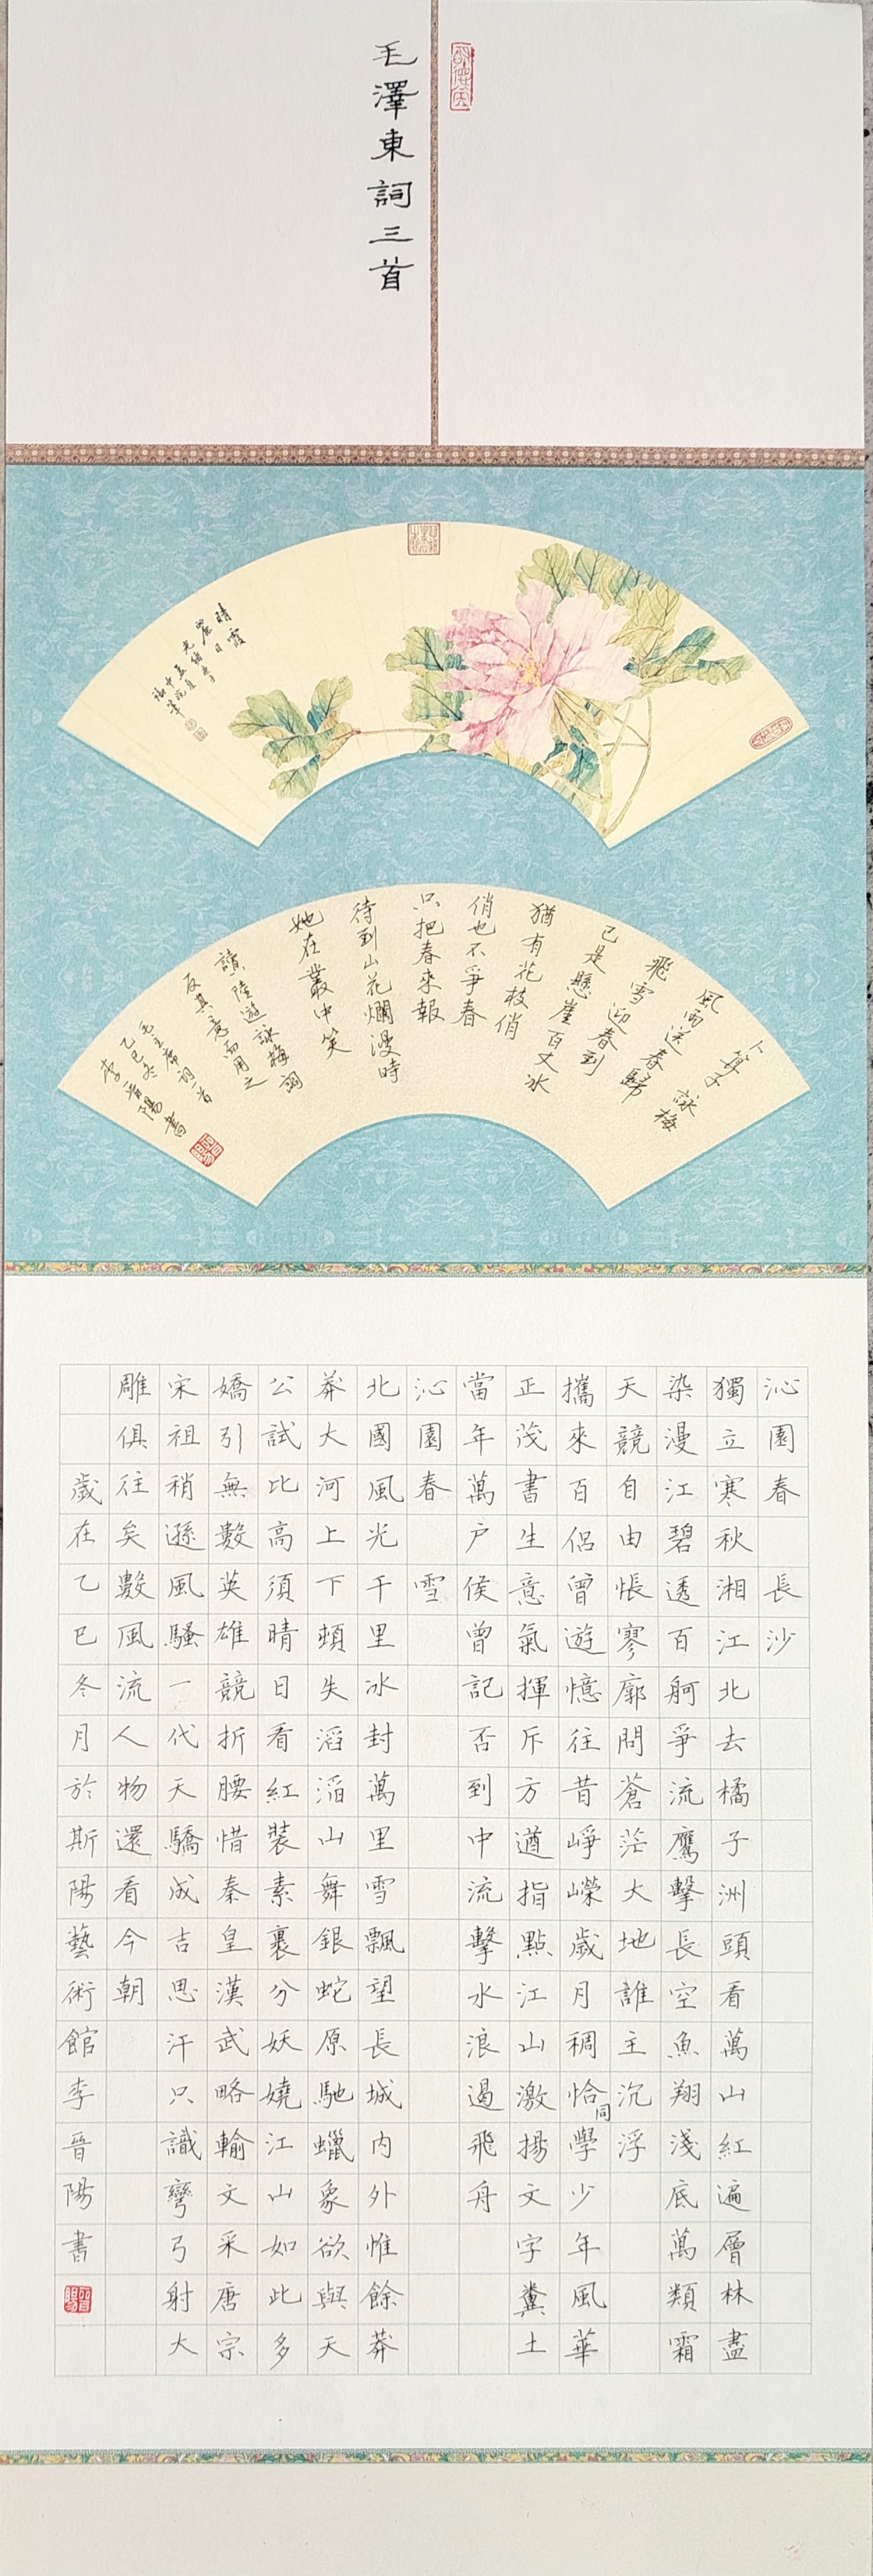 毛澤東詞三首
晴霞
麗日
卜算子 詠梅
風雨送春歸
飛雪迎春到
已是懸崖百丈冰
猶有花枝俏
俏也不爭春
只把春來報
待到山花爛漫時
她在叢中笑
讀陸遊詠梅詞
反其意而用之
毛主席詞一首
乙巳冬
李晉陽書
沁園春 長沙
獨立寒秋湘江北去橘子洲頭看萬山紅遍層林盡
染漫江碧透百舸爭流鷹擊長空魚翔淺底萬類霜
天競自由悵寥廓問蒼茫大地誰主沉浮
攜來百侶曾遊憶往昔崢嶸歲月稠恰同學少年風華
正茂書生意氣揮斥方遒指點江山激揚文字糞土
當年萬户侯曾記否到中流擊水浪遏飛舟
沁園春 雪
北國風光千里冰封萬里雪飄望長城内外惟餘莽
莽大河上下頓失滔滔山舞銀蛇原馳蠟象欲與天
公試比高須晴日看紅裝素裹分妖嬈江山如此多
嬌引無數英雄競折腰惜秦皇漢武略輸文采唐宗
宋祖稍遜風騷一代天驕成吉思汗只識彎弓射大
雕俱往矣數風流人物還看今朝
歲在乙巳冬月於斯陽藝術館李晉陽書